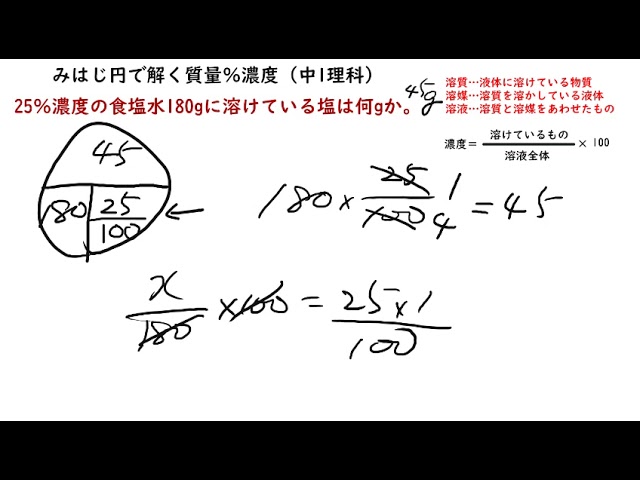 みはじ円で解く質量%濃度（中1理科）
25%濃度の食塩水180gに溶けている塩は何gか。45g
溶質…液体に溶けている物質
溶媒…溶質を溶かしている液体
溶液…溶質と溶媒をあわせたもの
濃度=溶けているもの/溶液全体 × 100
45
180 25/100 ←
180×25/100 1/4=45
x/180×100=25×1/100